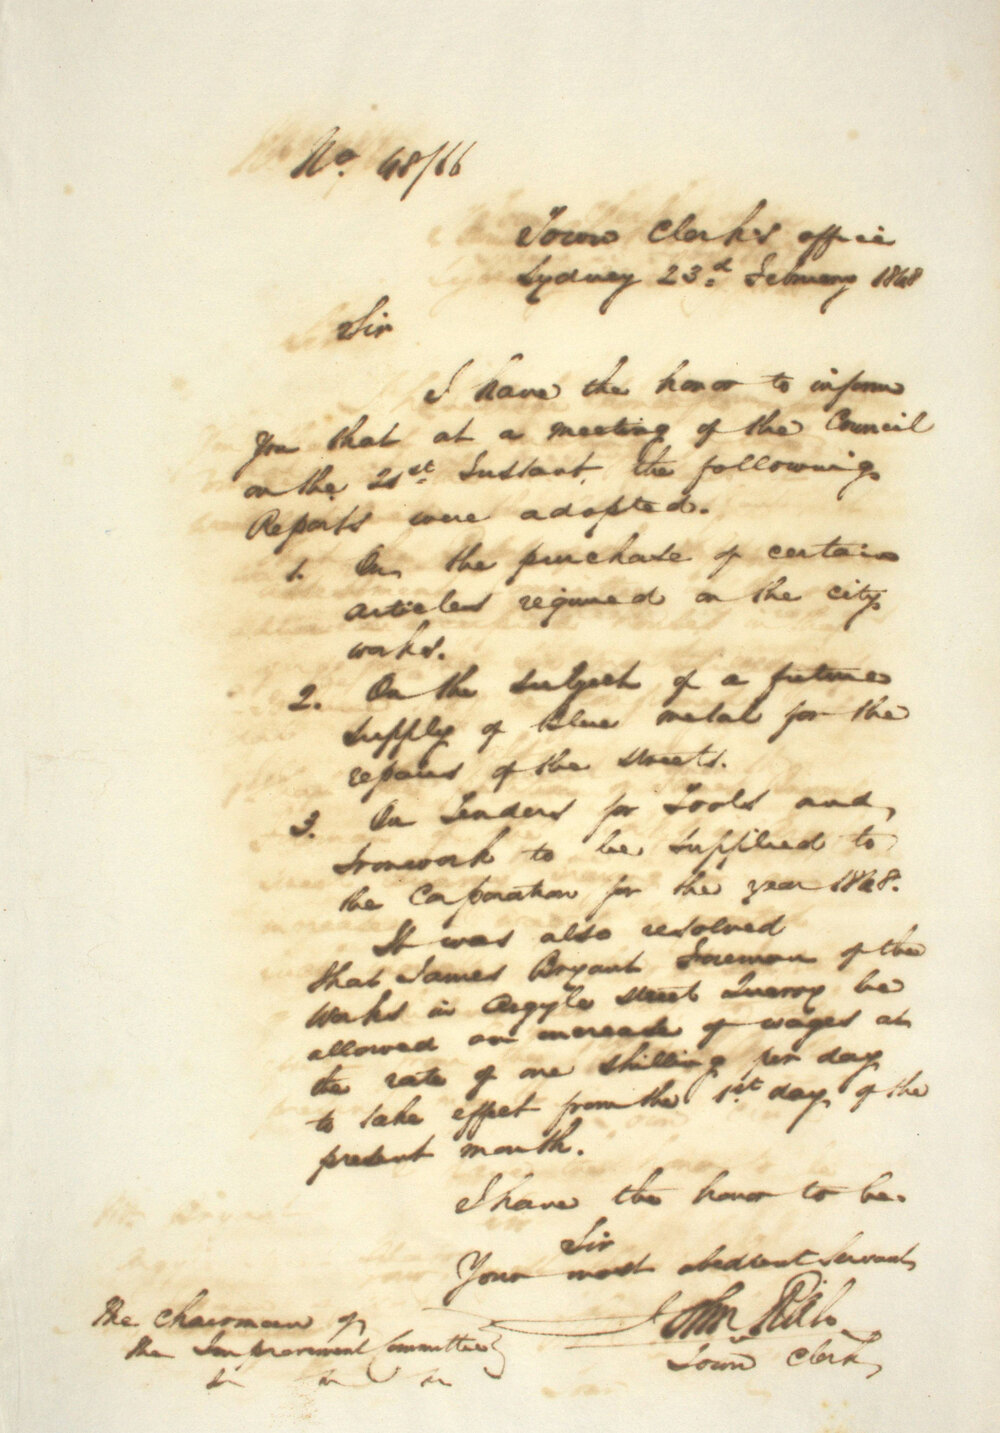 No. 48/66
Town Clerk's office
Sydney 23.d February 1848
Sir
I have the honor to inform
you that at a meeting of the Council
on the 21st. Instant, the following
Reports were adopted.
1. On the purchase of certain
articles required on the city
works.
2. On the subject of a future
supply of blue metal for the
repairs of the streets.
3. On Tenders for Tools and
Ironwork to be supplied to
the Corporation for the year 1848.
It was also resolved
that James Bryant Foreman of the
Works in Argyle Street Quarry be
allowed an increase of wages at
the rate of one shilling per day
to take effect from the 1st day of the
present month.
I have the honor to be.
Sir
Your most obedient Servant
John Rills
Town Clerk
The Chairman of
the Improvement Committee